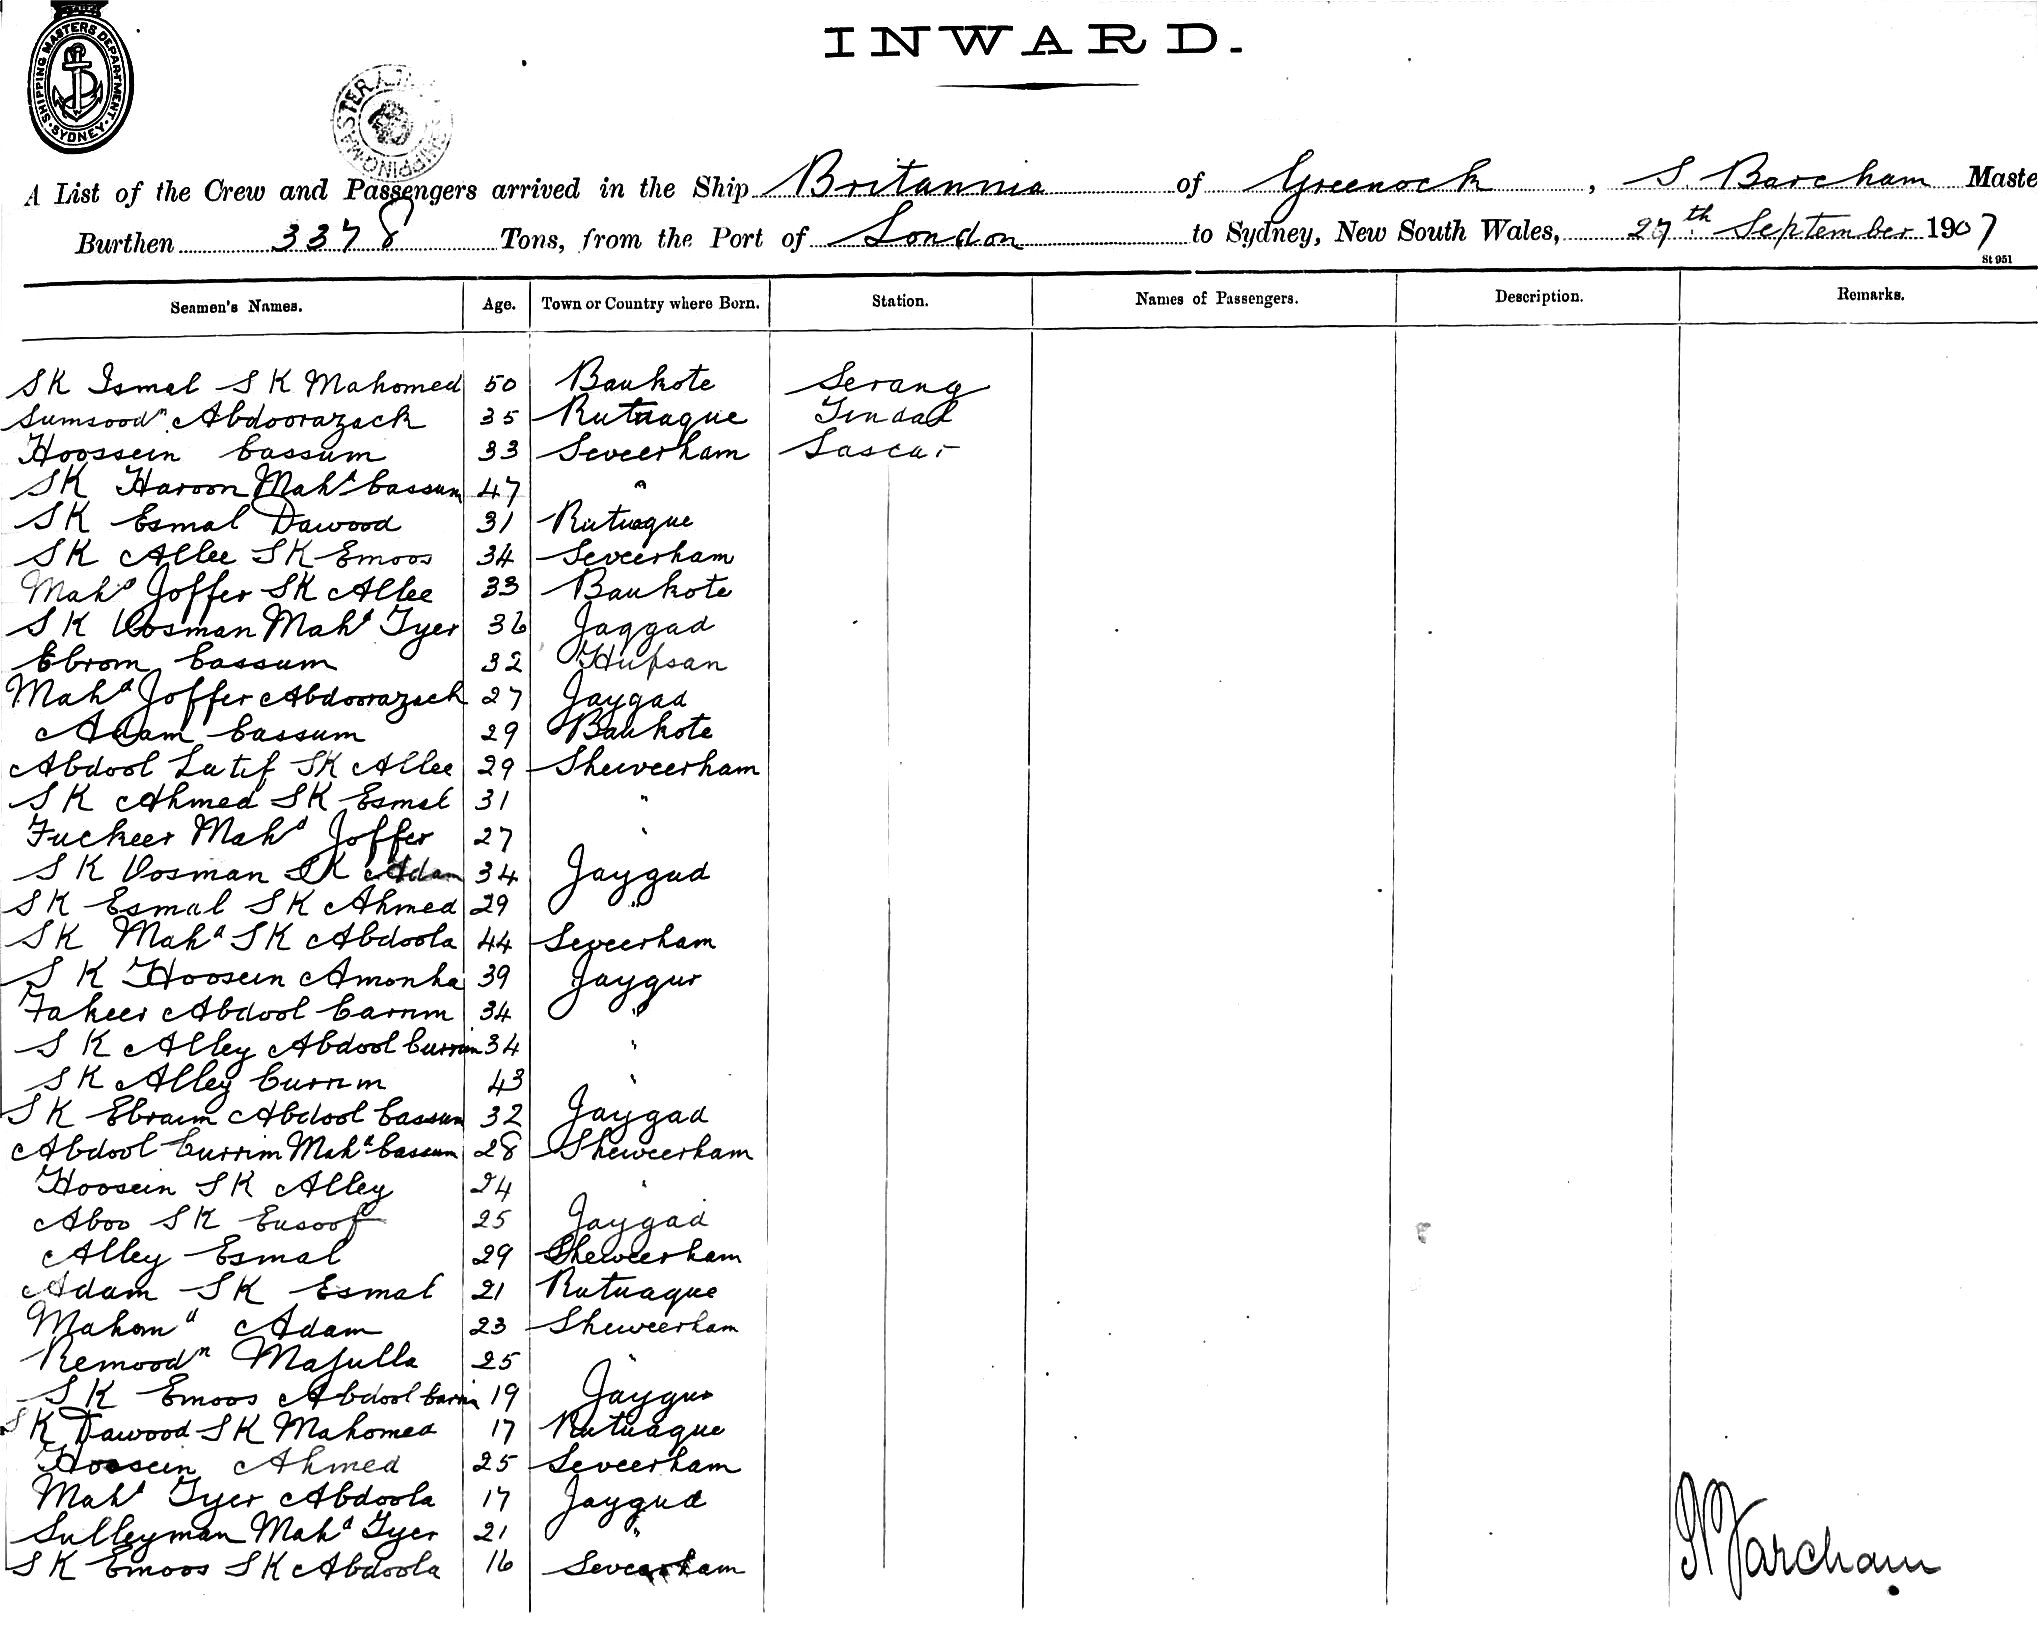 SHIPPING MASTERS DEPARTMENT
SYDNEY
SHIPPING MASTER
INWARD.
A List of the Crew and Passengers arrived in the Ship Britannia of Greenock, S. Barcham Maste
Burthen 3378 Tons, from the Port of London to Sydney, New South Wales, 27th September 1907
St 951
Seamen's Names. Age. Town or Country where Born. Station. Names of Passengers. Description. Remarks.
SK Ismal SK Mahomed 50 Baukote Serang
Sumsoodn Abdoorazack 35 Rutnaque Tindal
Hoossein Cassum 33 Seveerham Lascar
SK Haroon Mahd Cassum 47 "
SK Esmal Dawood 31 Rutnaque
SK Allee SK Emoos 34 Seveerham
Mahd Joffer SK Allee 33 Baukote
SK Oosman Mahd Tyer 36 Jaggad
Ebrom Cassum 32
Mahd Joffer Abdoorazack 27 Jaygad
Adam Cassum 29 Baukote
Abdool Latif SK Allee 29 Sheweerham
SK Ahmed SK Esmal 31 "
Fuckeer Mahd Joffer 27 "
SK Oosman SK Adam 34 Jaygad
SK Esmal SK Ahmed 29 "
SK Mahd SK Abdoola 44 Seveerham
SK Hoosein Amonka 39 Jaygur
Fakeer Abdool Carrim 34 "
SK Alley Abdool Currim 34 "
SK Alley Currim 43 "
SK Ebraim Abdool Cassum 32 Jaygad
Abdool Currim Mahd Cassum 28 Sheweerham
Hoosein SK Alley 24 "
Aboo SK Eusoof 25 Jaygad
Alley Esmal 29 Sheweerham
Adam SK Esmal 21 Rutnaque
Mahomd Adam 23 Sheweerham
Remoodn Majulla 25 "
SK Emoos Abdool Carrim 19 Jaygur
SK Dawood SK Mahomed 17 Rutnaque
Hoosein Ahmed 25 Seveerham
Mahd Tyer Abdoola 17 Jaygud
Sulleyman Mahd Tyer 21 "
SK Emoos SK Abdoola 16 Seveerham
S Barcham